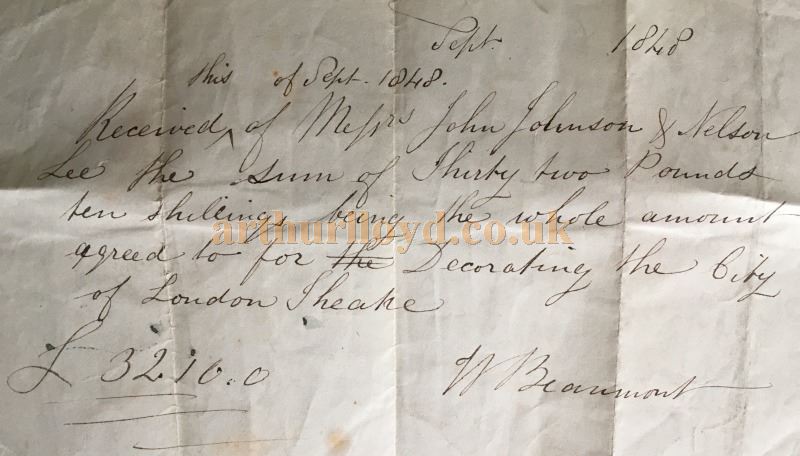 Sept. 1848
this of Sept. 1848.
Received ‸ of Messrs John Johnson & Nelson
Lee the sum of Thirty two Pounds
ten shillings, being the whole amount
arthurlloyd.co.uk
agreed to for the Decorating the City
of London Theatre
£ 32.10.0
W Beaumont